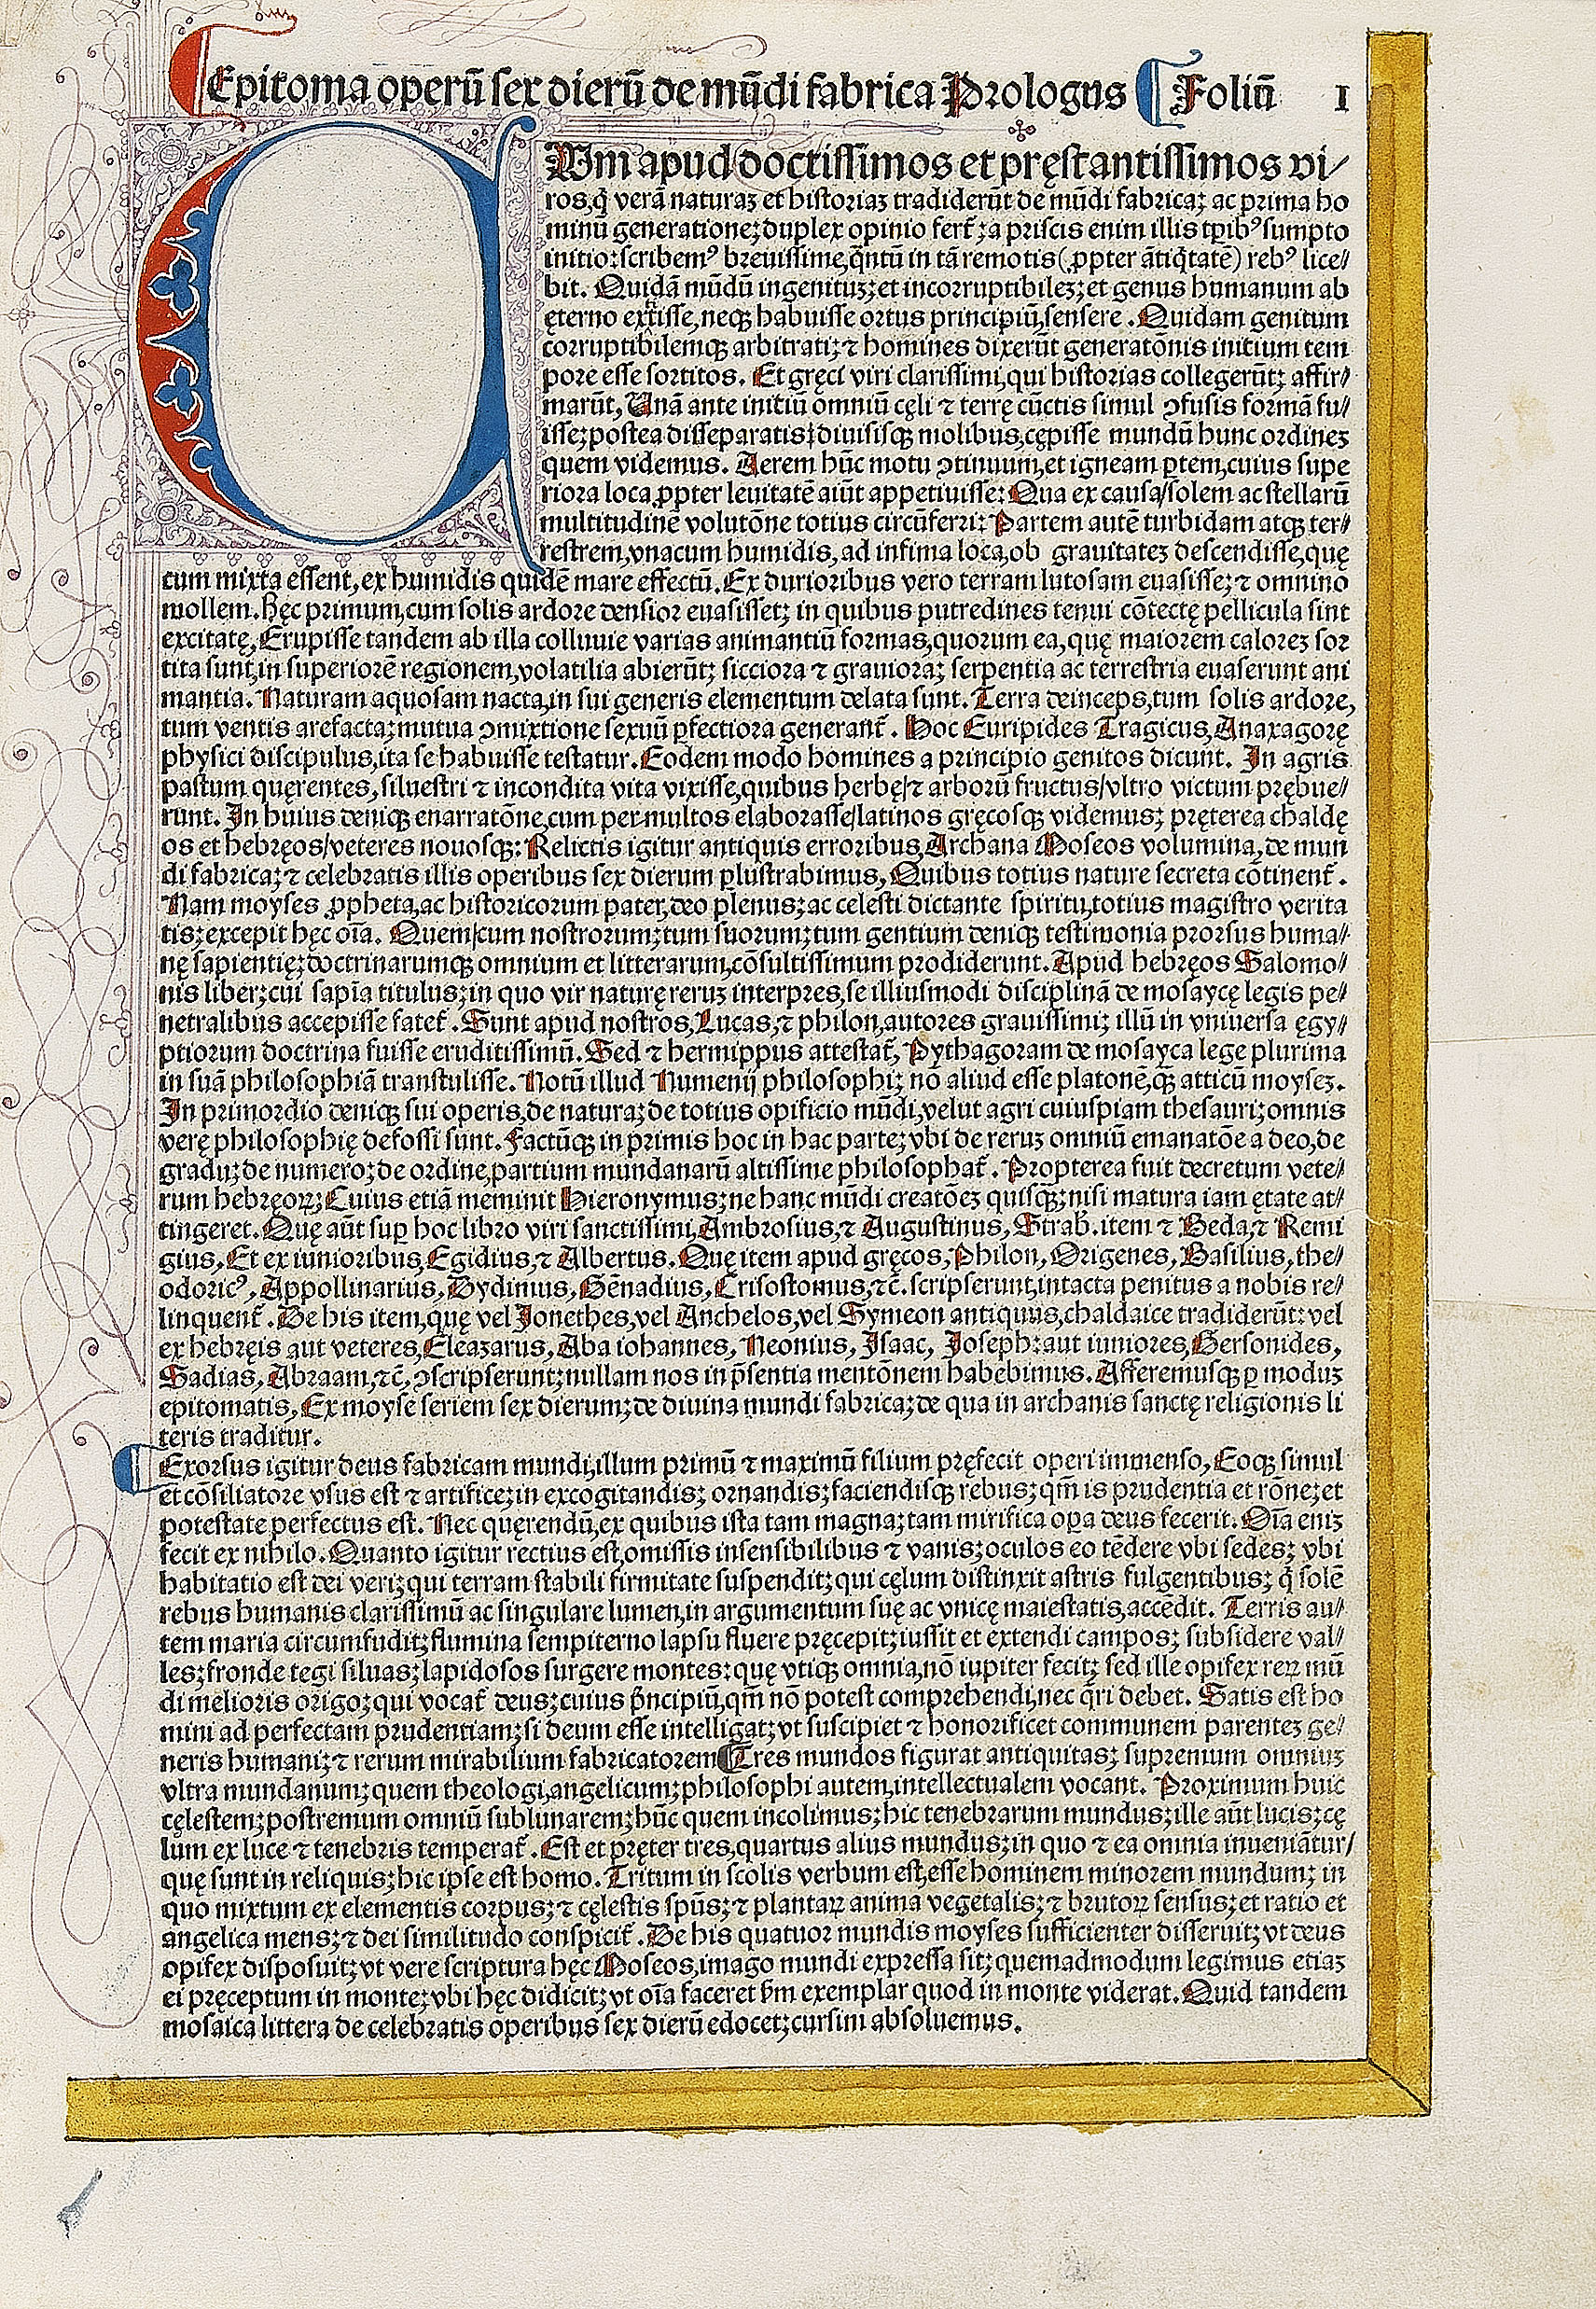 Epitoma operū sex dierū de mūdi fabrica Prologus Foliū I
Vm apud doctissimos et pręstantissimos vi/
ros, q̇ verā naturaꝫ et historiaꝫ tradiderūt de mūdi fabrica: ac prima ho
minū generatione: duplex opinio fert̃: a priscis enim illis tꝑibꝰ sumpto
initio: scribemꝰ breuissime, q̄ntū in tā remotis (ꝓpter ātiq̇tatē) rebꝰ lice/
bit. Quidā mūdū ingenituꝫ: et incorruptibileꝫ: et genus humanum ab
ęterno extitisse, neqꝫ habuisse ortus principiū, sensere. Quidam genitum
corruptibilemqꝫ arbitrati: ⁊ homines dixerūt generatōnis initium tem
pore esse sortitos. Et gręci viri clarissimi, qui historias collegerūt: affir/
marūt, Vnā ante initiū omniū cęli ⁊ terrę cūctis simul ꝯfusis formā fu/
isse: postea disseparatis: diuisisqꝫ molibus, cępisse mundū hunc ordineꝫ
quem videmus. Aerem hūc motu ꝯtinuum, et igneam ꝑtem, cuius supe
riora loca ꝓpter leuitatē aiūt appetiuisse: Qua ex causa/ solem ac stellarū
multitudinē volutōne totius circūferri: Partem autē turbidam atqꝫ ter/
restrem, vnacum humidis, ad infima loca, ob grauitateꝫ descendisse, quę
cum mixta essent, ex humidis quidē mare effectū. Ex durioribus vero terram lutosam euasisse: ⁊ omnino
mollem. Hęc primum, cum solis ardore densior euasisset: in quibus putredines tenui cōtectę pellicula sint
excitatę, Erupisse tandem ab illa colluuie varias animantiū formas, quorum ea, quę maiorem caloreꝫ sor
tita sunt, in superiorē regionem, volatilia abierūt: sicciora ⁊ grauiora: serpentia ac terrestria euaserunt ani
mantia. Naturam aquosam nacta, in sui generis elementum delata sunt. Terra deinceps, tum solis ardore,
tum ventis arefacta: mutua ꝯmixtione sexuū ꝑfectiora generant̃. Hoc Euripides Tragicus, Anaxagorę
physici discipulus, ita se habuisse testatur. Eodem modo homines a principio genitos dicunt. In agris
pastum quęrentes, siluestri ⁊ incondita vita vixisse, quibus herbę/ ⁊ arborū fructus/ vltro victum prębue/
runt. In huius deniqꝫ enarratōne, cum permultos elaborasse/ latinos gręcosqꝫ videmus: pręterea chaldę
os et hebręos/ veteres nouosqꝫ: Relictis igitur antiquis erroribus, Archana Moseos volumina, de mun
di fabrica: ⁊ celebratis illis operibus sex dierum ꝑlustrabimus, Quibus totius nature secreta cōtinent̃.
Nam moyses ꝓpheta, ac historicorum pater, deo plenus: ac celesti dictante spiritu, totius magistro verita
tis: excepit hęc oīa. Quem/ cum nostrorum: tum suorum: tum gentium deniqꝫ testimonia prorsus huma/
nę sapientię: doctrinarumqꝫ omnium et litterarum, cōsultissimum prodiderunt. Apud hebręos Salomo/
nis liber: cui sapīa titulus: in quo vir naturę reruꝫ interpres, se illiusmodi disciplinā de mosaycę legis pe/
netralibus accepisse fatet̃. Sunt apud nostros, Lucas, ⁊ philon, autores grauissimi: illū in vniuersa ęgy/
ptiorum doctrina fuisse eruditissimū. Sed ⁊ hermippus attestat̃, Pythagoram de mosayca lege plurima
in suā philosophiā transtulisse. Notū illud Numenij philosophi: nō aliud esse platonē, qꝫ̄ atticū moyseꝫ.
In primordio deniqꝫ sui operis, de natura: de totius opificio mūdi, velut agri cuiuspiam thesauri: omnis
verę philosophię defossi sunt. Factūqꝫ in primis hoc in hac parte: vbi de reruꝫ omniū emanatōe a deo, de
gradu: de numero: de ordine, partium mundanarū altissime philosophat̃. Propterea fuit decretum vete/
rum hebręoꝝ: Cuius etiā meminit Hieronymus: ne hanc mūdi creatōeꝫ quisqꝫ̄: nisi matura iam ętate at/
tingeret. Quę aūt suꝑ hoc libro viri sanctissimi, Ambrosius, ⁊ Augustinus, Strab. item ⁊ Beda, ⁊ Remi
gius, Et ex iunioribus, Egidius, ⁊ Albertus. Quę item apud gręcos, Philon, Origenes, Basilius, the/
odoricꝰ, Appollinarius, Dydimus, Gēnadius, Crisostomus, ⁊c̄. scripserunt, intacta penitus a nobis re/
linquent̃. De his item, quę vel Jonethes, vel Anchelos, vel Symeon antiquus, chaldaice tradiderūt: vel
ex hebręis aut veteres, Eleazarus, Aba iohannes, Neonius, Isaac, Joseph: aut iuniores, Gersonides,
Sadias, Abraam, ⁊c̄, ꝯscripserunt: nullam nos in p̄sentia mentōnem habebimus. Afferemusqꝫ ꝑ moduꝫ
epitomatis, Ex moyse seriem sex dierum: de diuina mundi fabrica: de qua in archanis sanctę religionis li
teris traditur.
Exorsus igitur deus fabricam mundi: illum primū ⁊ maximū filium pręfecit operi immenso, Eoqꝫ simul
et cōsiliatore vsus est ⁊ artifice: in excogitandis: ornandis: faciendisqꝫ rebus: qm̄ is prudentia et rōne: et
potestate perfectus est. Nec quęrendū, ex quibus ista tam magna: tam mirifica oꝑa deus fecerit. Oīa eniꝫ
fecit ex nihilo. Quanto igitur rectius est, omissis insensibilibus ⁊ vanis: oculos eo tēdere vbi sedes: vbi
habitatio est dei veri: qui terram stabili firmitate suspendit: qui cęlum distinxit astris fulgentibus: q̇ solē
rebus humanis clarissimū ac singulare lumen, in argumentum suę ac vnicę maiestatis, accēdit. Terris au/
tem maria circumfudit: flumina sempiterno lapsu fluere pręcepit: iussit et extendi campos: subsidere val/
les: fronde tegi siluas: lapidosos surgere montes: quę vtiqꝫ omnia, nō iupiter fecit: sed ille opifex reꝝ mū
di melioris origo: qui vocat̃ deus: cuius p̄ncipiū, qm̄ nō potest comprehendi, nec q̄ri debet. Satis est ho
mini ad perfectam prudentiam: si deum esse intelligat: vt suscipiet ⁊ honorificet communem parenteꝫ ge/
neris humani: ⁊ rerum mirabilium fabricatorem Tres mundos figurat antiquitas: supremum omniuꝫ
vltra mundanum: quem theologi, angelicum: philosophi autem, intellectualem vocant. Proximum huic
cęlestem: postremum omniū sublunarem: hūc quem incolimus: hic tenebrarum mundus: ille aūt lucis: cę
lum ex luce ⁊ tenebris temperat̃. Est et pręter tres, quartus alius mundus: in quo ⁊ ea omnia inueniātur/
quę sunt in reliquis: hic ipse est homo. Tritum in scolis verbum est, esse hominem minorem mundum: in
quo mixtum ex elementis corpus: ⁊ cęlestis spūs: ⁊ plantaꝝ anima vegetalis: ⁊ brutoꝝ sensus: et ratio et
angelica mens: ⁊ dei similitudo conspicit̃. De his quatuor mundis moyses sufficienter disseruit: vt deus
opifex disposuit: vt vere scriptura hęc Moseos, imago mundi expressa sit: quemadmodum legimus etiaꝫ
ei pręceptum in monte: vbi hęc didicit: vt oīa faceret ẜm exemplar quod in monte viderat. Quid tandem
mosaica littera de celebratis operibus sex dierū edocet: cursim absoluemus.